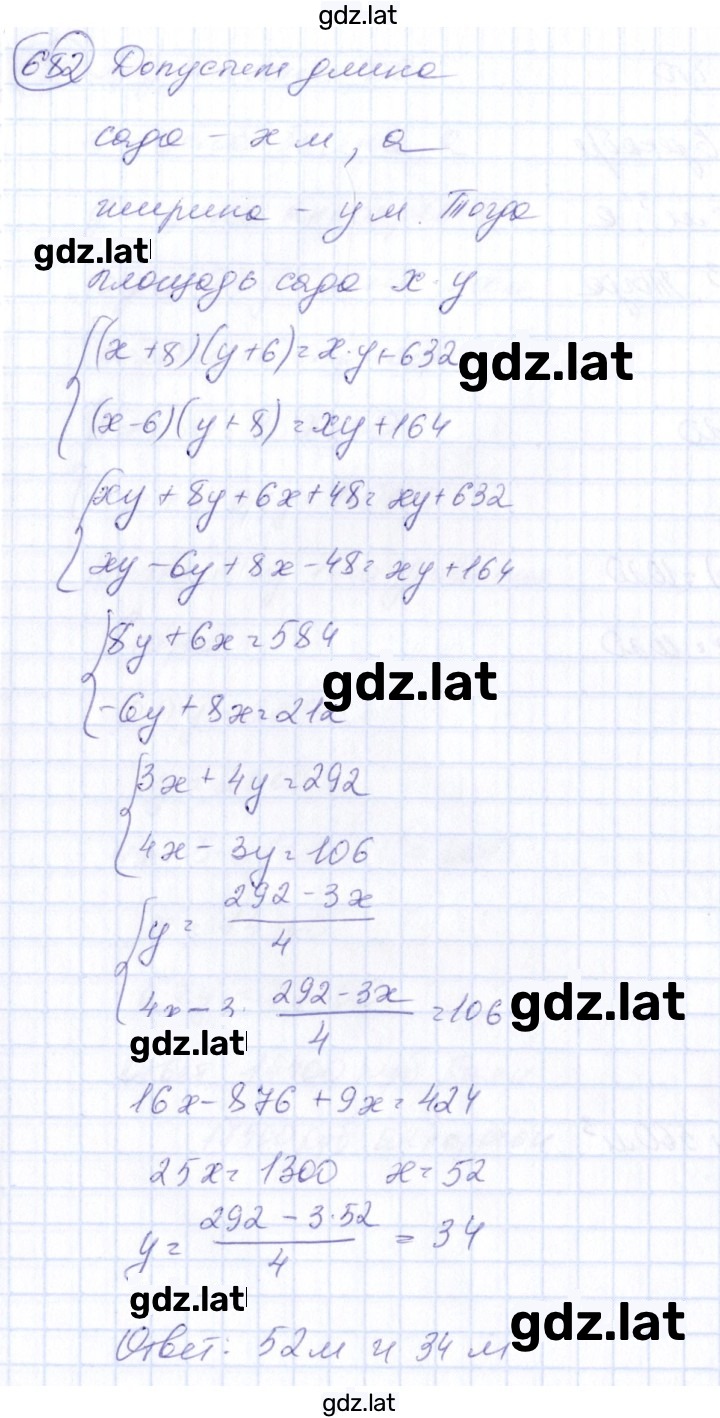 gdz.lat
682 Допустим длина
сада - x м, а
ширина - y м. Тогда
gdz.lat
площадь сада x · y
(x + 8)(y + 6) = x · y + 632
gdz.lat
(x - 6)(y + 8) = xy + 164
xy + 8y + 6x + 48 = xy + 632
xy - 6y + 8x - 48 = xy + 164
8y + 6x = 584
gdz.lat
-6y + 8x = 212
3x + 4y = 292
4x - 3y = 106
y = (292 - 3x)/4
4x - 3 · (292 - 3x)/4 = 106
gdz.lat
gdz.lat
16x - 876 + 9x = 424
25x = 1300 x = 52
y = (292 - 3 · 52)/4 = 34
gdz.lat
gdz.lat
Ответ: 52 м и 34 м
gdz.lat